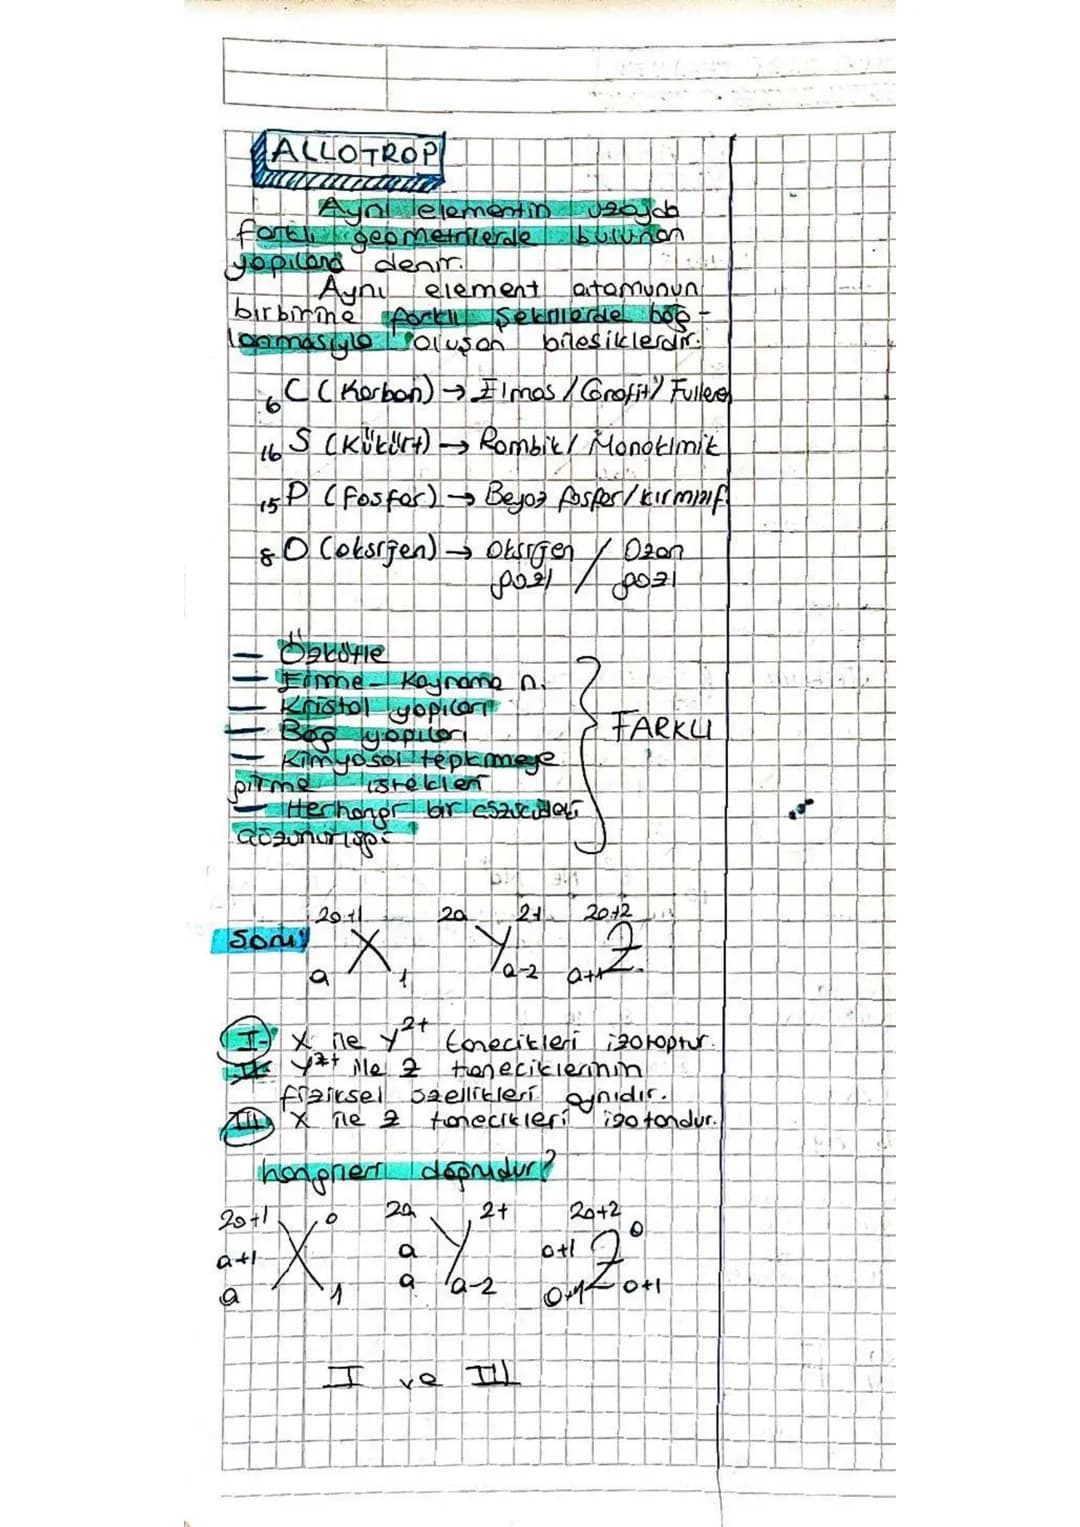 ALLOTROP
Aynı elementin uzayda
farklı geometrilerde bulunan
yapılara denir.
Aynı element atomunun
birbirine farklı şekillerde bağ-
lanmasıyla oluşan bileşiklerdir.
6 C (Karbon) → Elmas / Grafit / Fulleren
16 S (Kükürt) → Rombik / Monoklinik
15 P (Fosfor) → Beyaz fosfor / kırmızı f
8 O (oksijen) → oksijen / Ozon
gazı / gazı
— Özkütle
— Erime - Kaynama n.
— Kristal yapıları
— Bağ yapıları
— Kimyasal tepkimeye
girme istekleri
— Herhangi bir çözücüdeki
çözünürlüğü
FARKLI
2a+1 2a 2+ 2a+2
Soru X Y Z
a 1 a-2 a+1
I- X ile Y2+ tanecikleri izotoptur.
II- Y2+ ile Z taneciklerinin
fiziksel özellikleri aynıdır.
III- X ile Z tanecikleri izotondur.
hangileri doğrudur?
2a+1 0 2a 2+ 2a+2 0
a+1 X a Y a+1 Z
a 1 a a-2 a+1 a+1
I ve III